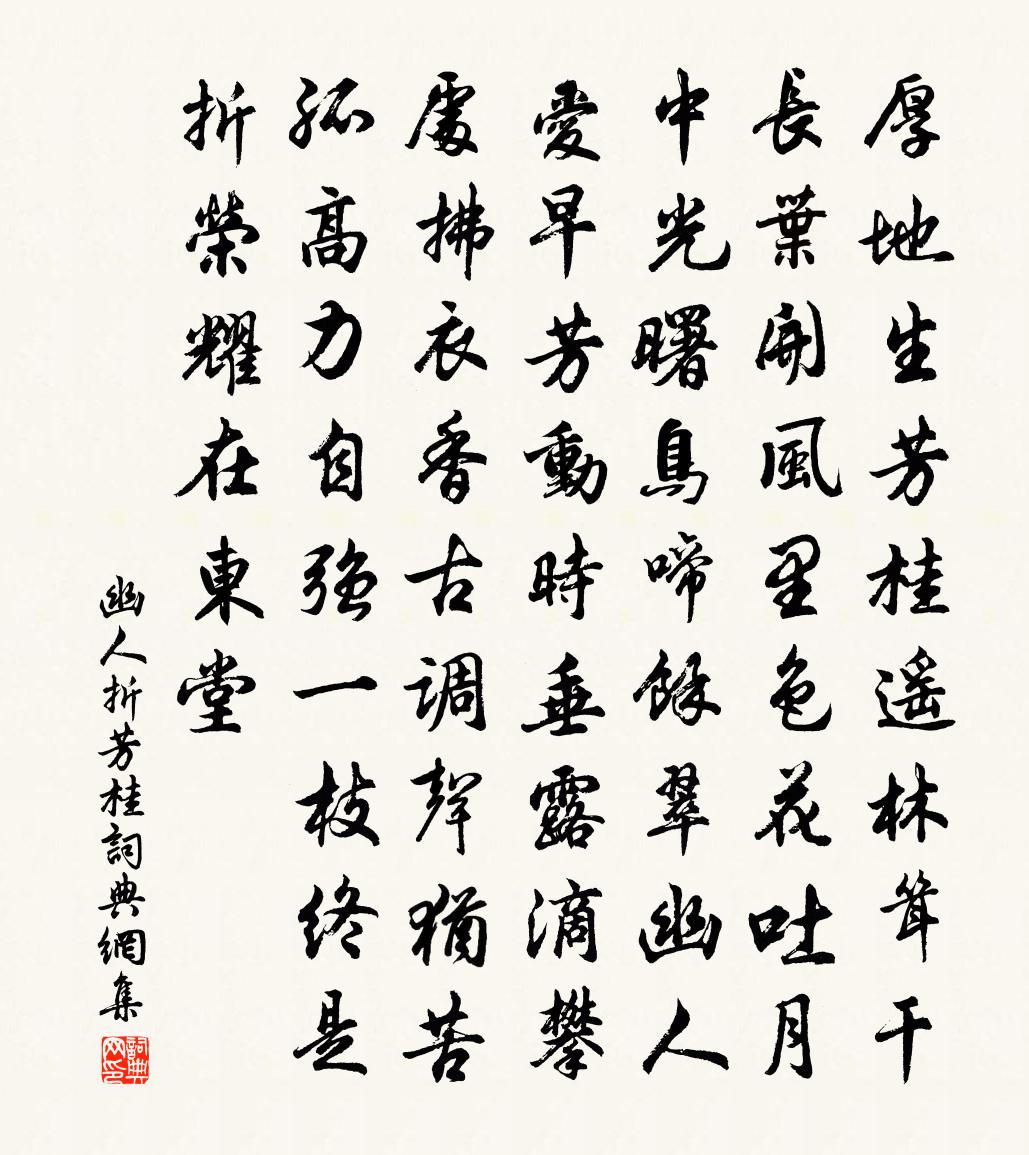 厚地生芳桂遥林耸干
長葉開風里色花吐月
中光曙鳥啼餘翠幽人
愛早芳動時垂露滴攀
處拂衣香古調聲猶苦
孤高力自强一枝終是
折榮耀在東堂
幽人折芳桂詞典網集
詞典网印